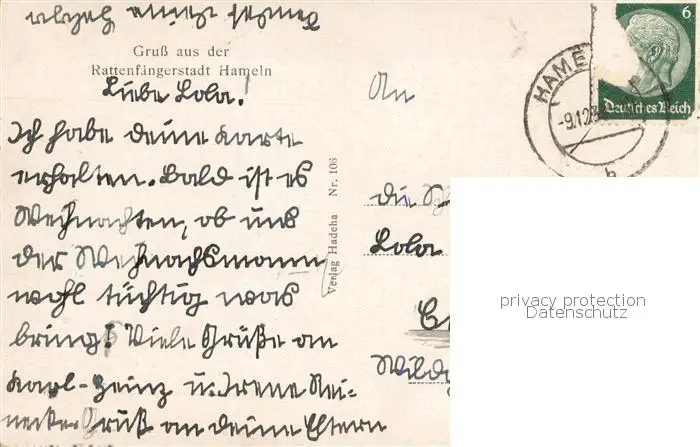 Gruß aus der
Rattenfängerstadt Hameln
Liebe Lola!
Ich habe deine Karte
erhalten. Bald ist es
Weihnachten, ob uns
der Weihnachsmann
wohl tüchtig was
bringt! Viele Grüße an
Karl-Heinz u. Irene Rei-
necke. Gruß an deine Eltern
Verlag Hadeha Nr. 106
6
Deutsches Reich
HAME
-9.12.3
b
An
die
Lola
Wild
privacy protection
Datenschutz